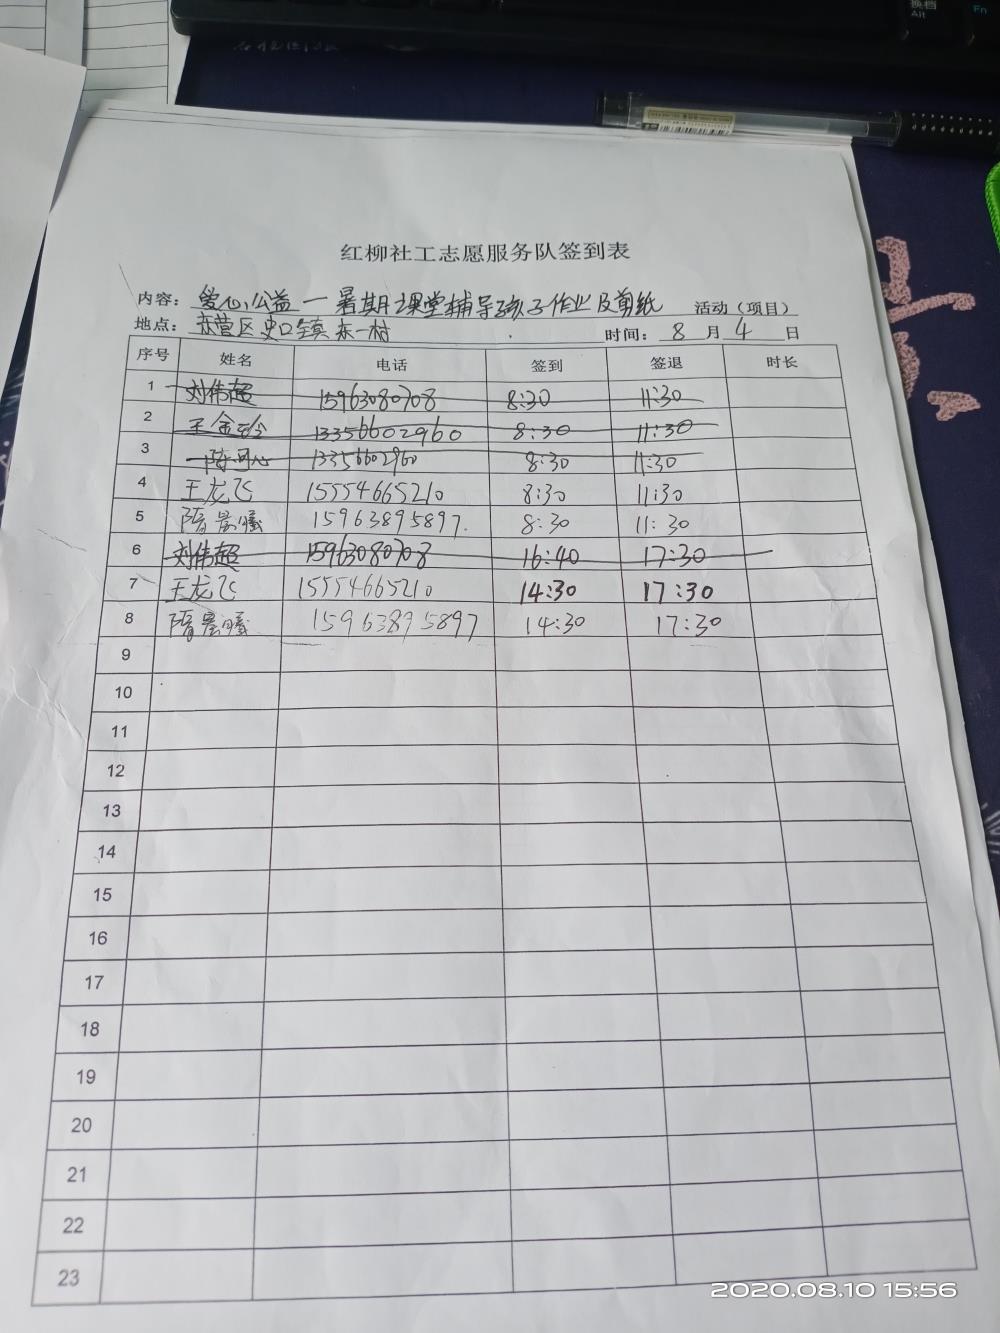 换档
Alt
Fn
红柳社工志愿服务队签到表
内容：爱心公益一暑期课堂辅导孩子作业及剪纸 活动（项目）
地点：东营区史口镇东一村 时间：8月4日
序号 姓名 电话 签到 签退 时长
1 刘伟超 15963080708 8:30 11:30
2 王金玲 13356602960 8:30 11:30
3 陈可心 13356602960 8:30 11:30
4 王龙飞 15554665210 8:30 11:30
5 隋景曦 15963895897. 8:30 11:30
6 刘伟超 15963080708 16:40 17:30
7 王龙飞 15554665210 14:30 17:30
8 隋景曦 15963895897 14:30 17:30
9
10
11
12
13
14
15
16
17
18
19
20
21
22
23
2020.08.10 15:56